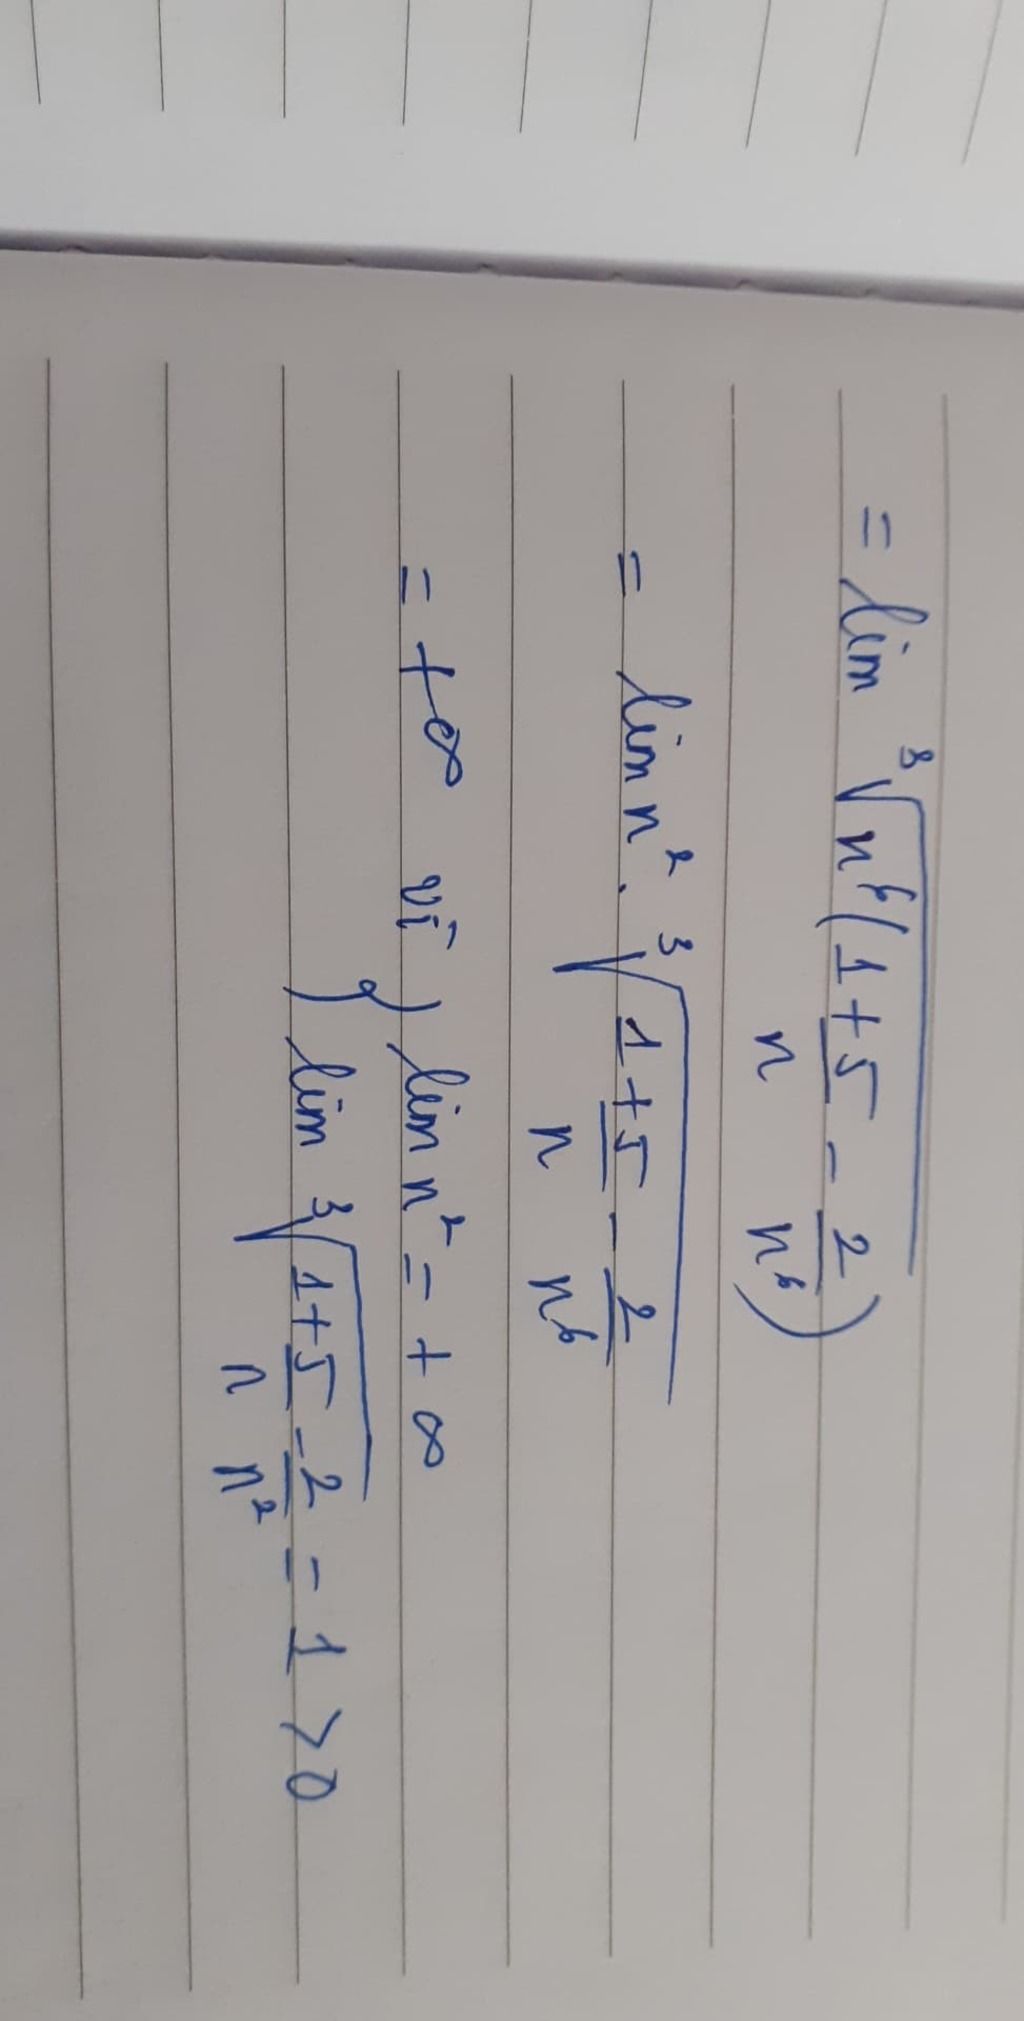 = lim ³√(n⁶(1 + 5/n - 2/n⁶))
= lim n² . ³√(1 + 5/n - 2/n⁶)
= +∞ vì { lim n² = +∞
lim ³√(1 + 5/n - 2/n²) = 1 > 0